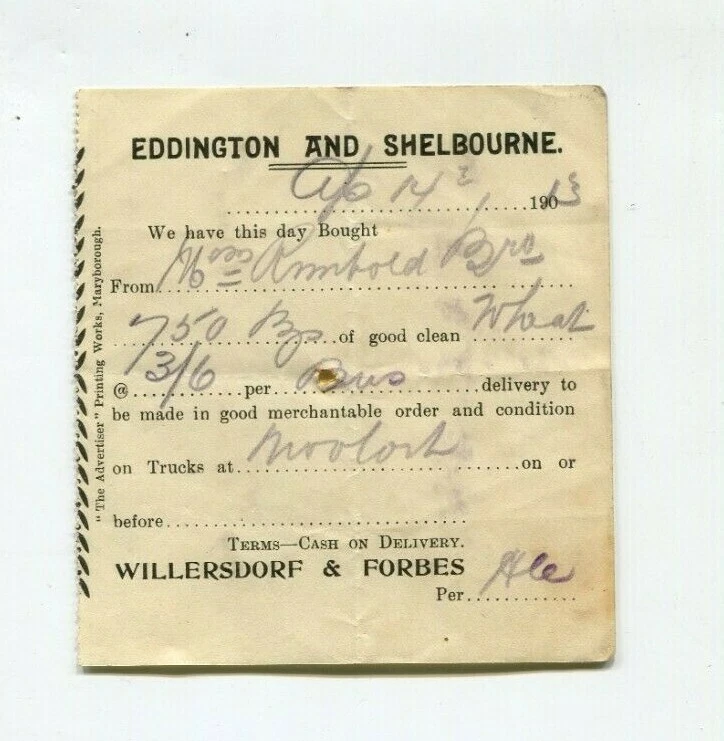 EDDINGTON AND SHELBOURNE.
14 1913
We have this day Bought
From Bros
750 of good clean Wheat
@ 3/6 per Bus delivery to
be made in good merchantable order and condition
on Trucks at Moolort on or
before
TERMS—CASH ON DELIVERY.
WILLERSDORF & FORBES
Per
"The Advertiser" Printing Works, Maryborough.